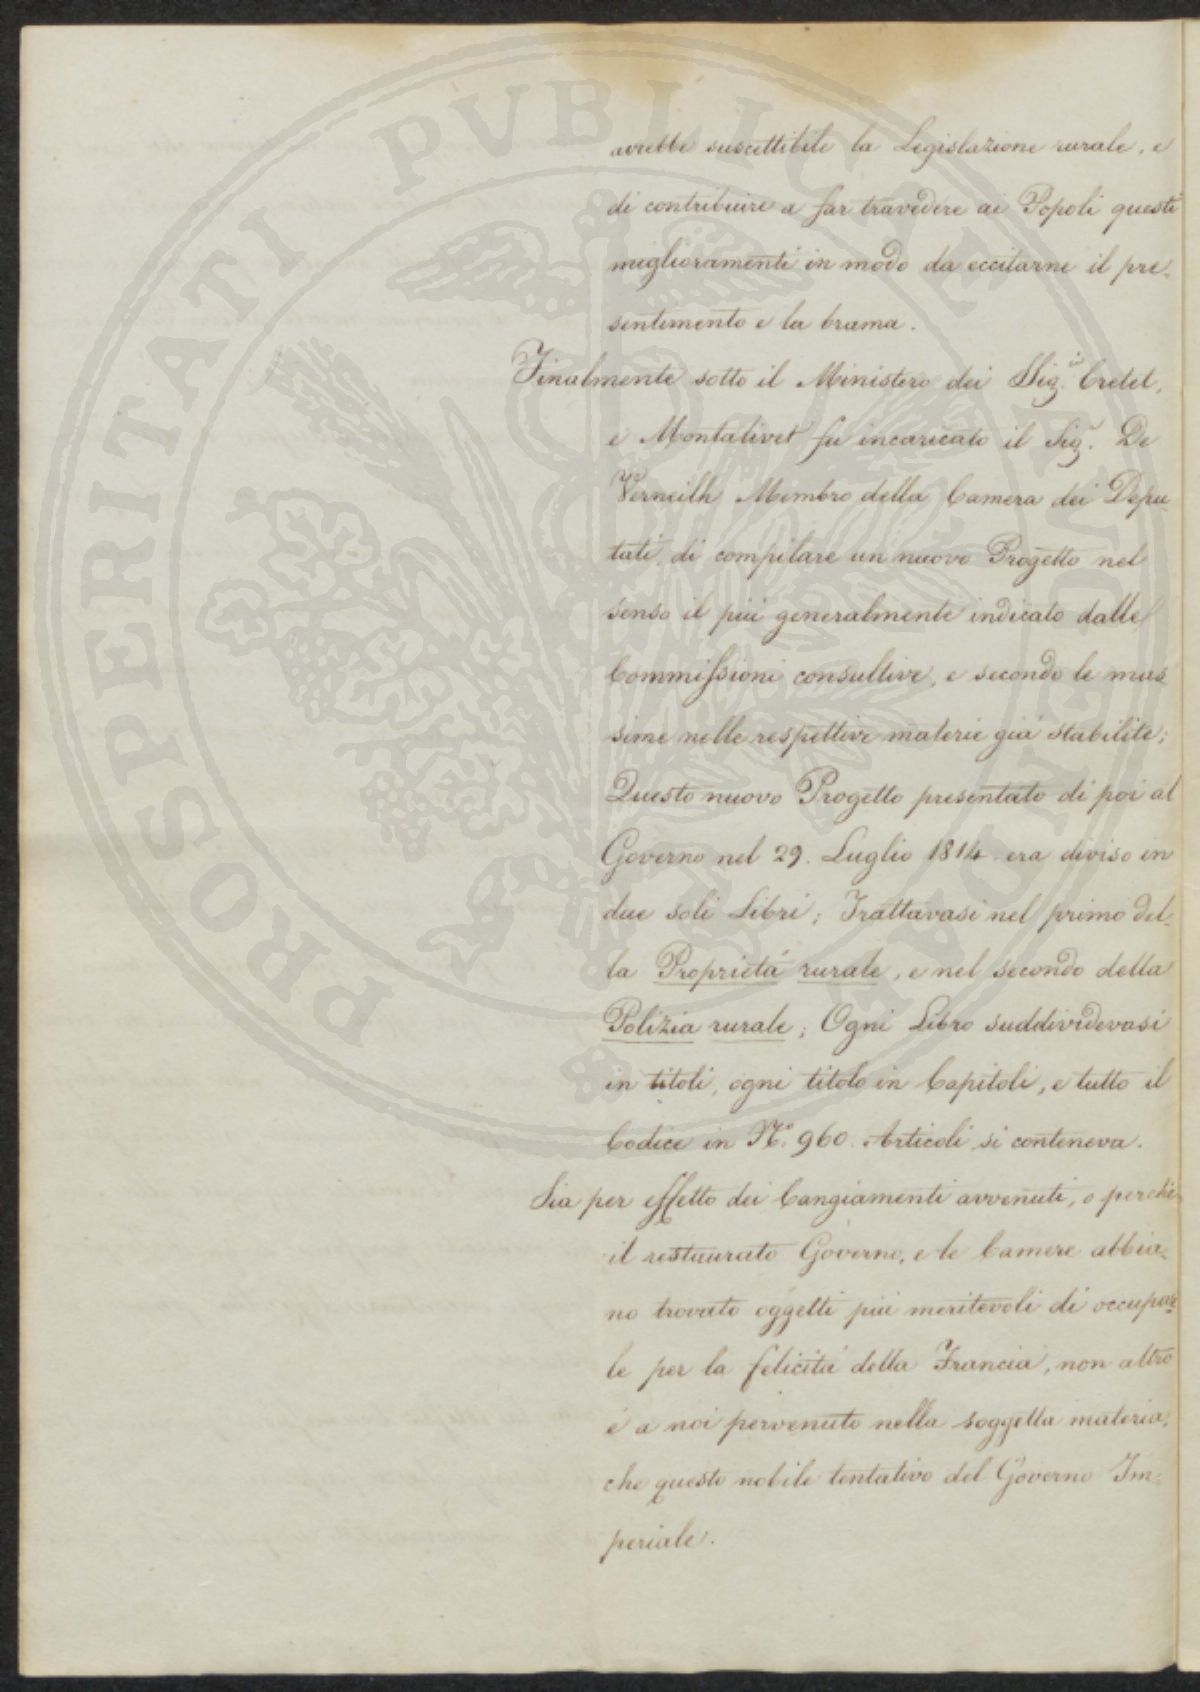 avrebbe suscettibile la Legislazione rurale, e
di contribuire a far travedere ai Popoli questi
miglioramenti in modo da eccitarne il pre-
sentimento e la brama.
Finalmente sotto il Ministero dei Sigri Cretet,
e Montalivet fu incaricato il Sigr. De
Verneilh Membro della Camera dei Depu-
tati, di compilare un nuovo Progetto nel
senso il più generalmente indicato dalle
Commissioni consultive, e secondo le mas
sime nelle respettive materie già stabilite;
Questo nuovo Progetto presentato di poi al
Governo nel 29. Luglio 1814. era diviso in
due soli Libri; Trattavasi nel primo del-
la Proprietà rurale, e nel secondo della
Polizia rurale; Ogni Libro suddividevasi
in titoli, ogni titolo in Capitoli, e tutto il
Codice in No. 960. Articoli si conteneva.
Sia per effetto dei Cangiamenti avvenuti, o perchè
il restaurato Governo, e le Camere abbia-
no trovato oggetti più meritevoli di occupar-
le per la felicità della Francia, non altro
è a noi pervenuto nella soggetta materia,
che questo nobile tentativo del Governo Im-
periale.
PROSPERITATI PVBLICAE AVGENDAE